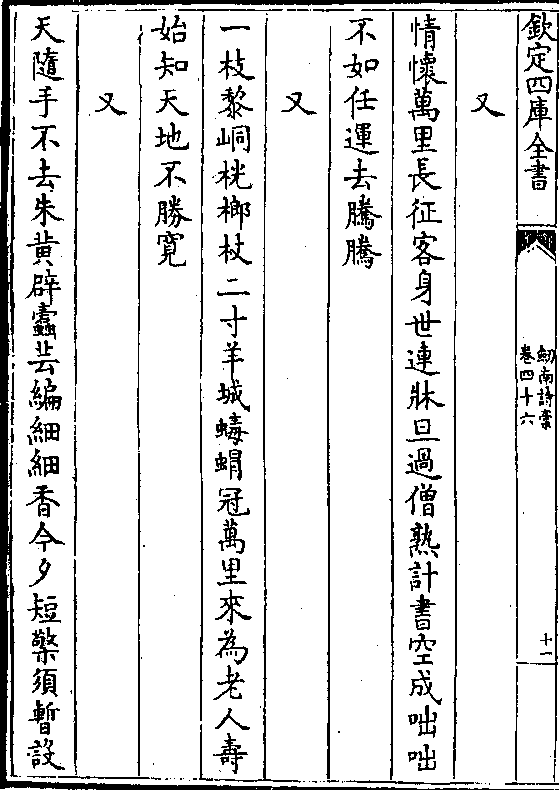 欽定四庫全書
劒南詩稾
卷四十六
十一
又
情懷萬里長征客身世連牀旦過僧熟計書空成咄咄
不如任運去騰騰
又
一枝黎峒桄榔杖二寸羊城蟕蠵冠萬里來為老人壽
始知天地不勝寛
又
天隨手不去朱黄辟蠧芸編細細香今夕短檠須暫設